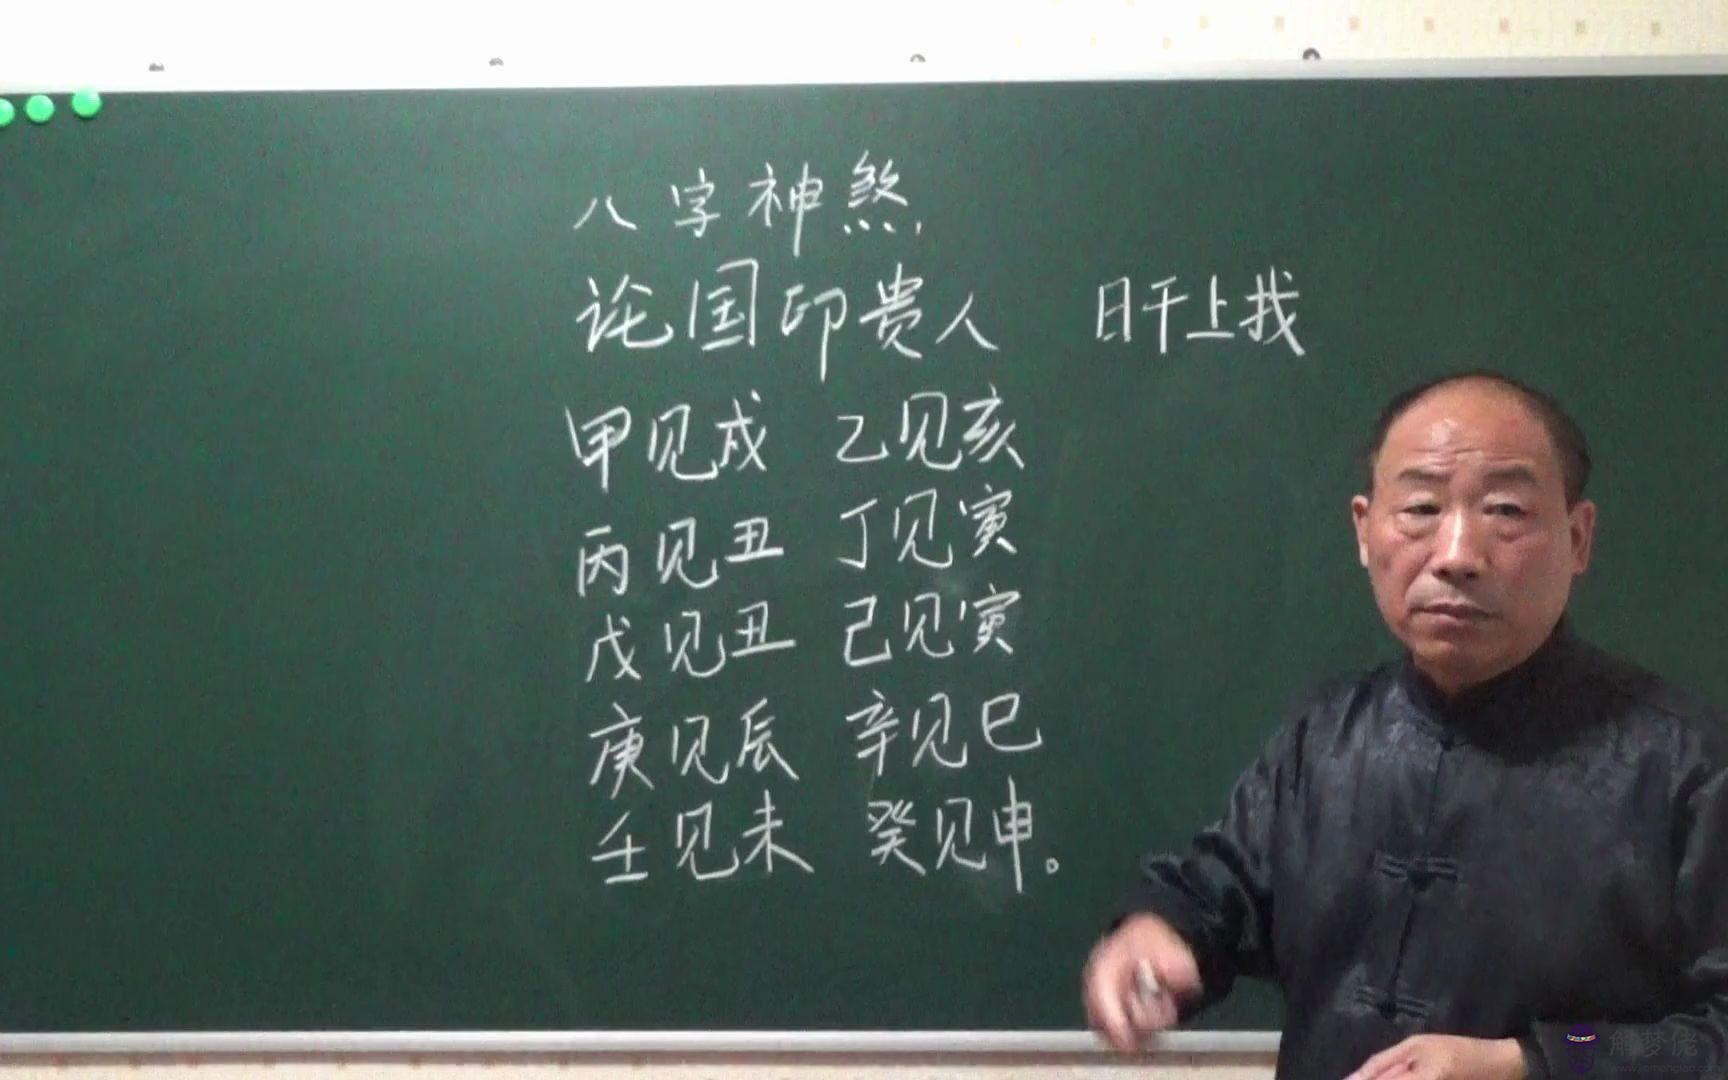 八字神煞,
论国印贵人 日干上找
甲见戌 乙见亥
丙见丑 丁见寅
戊见丑 己见寅
庚见辰 辛见巳
壬见未 癸见申。
解梦佬